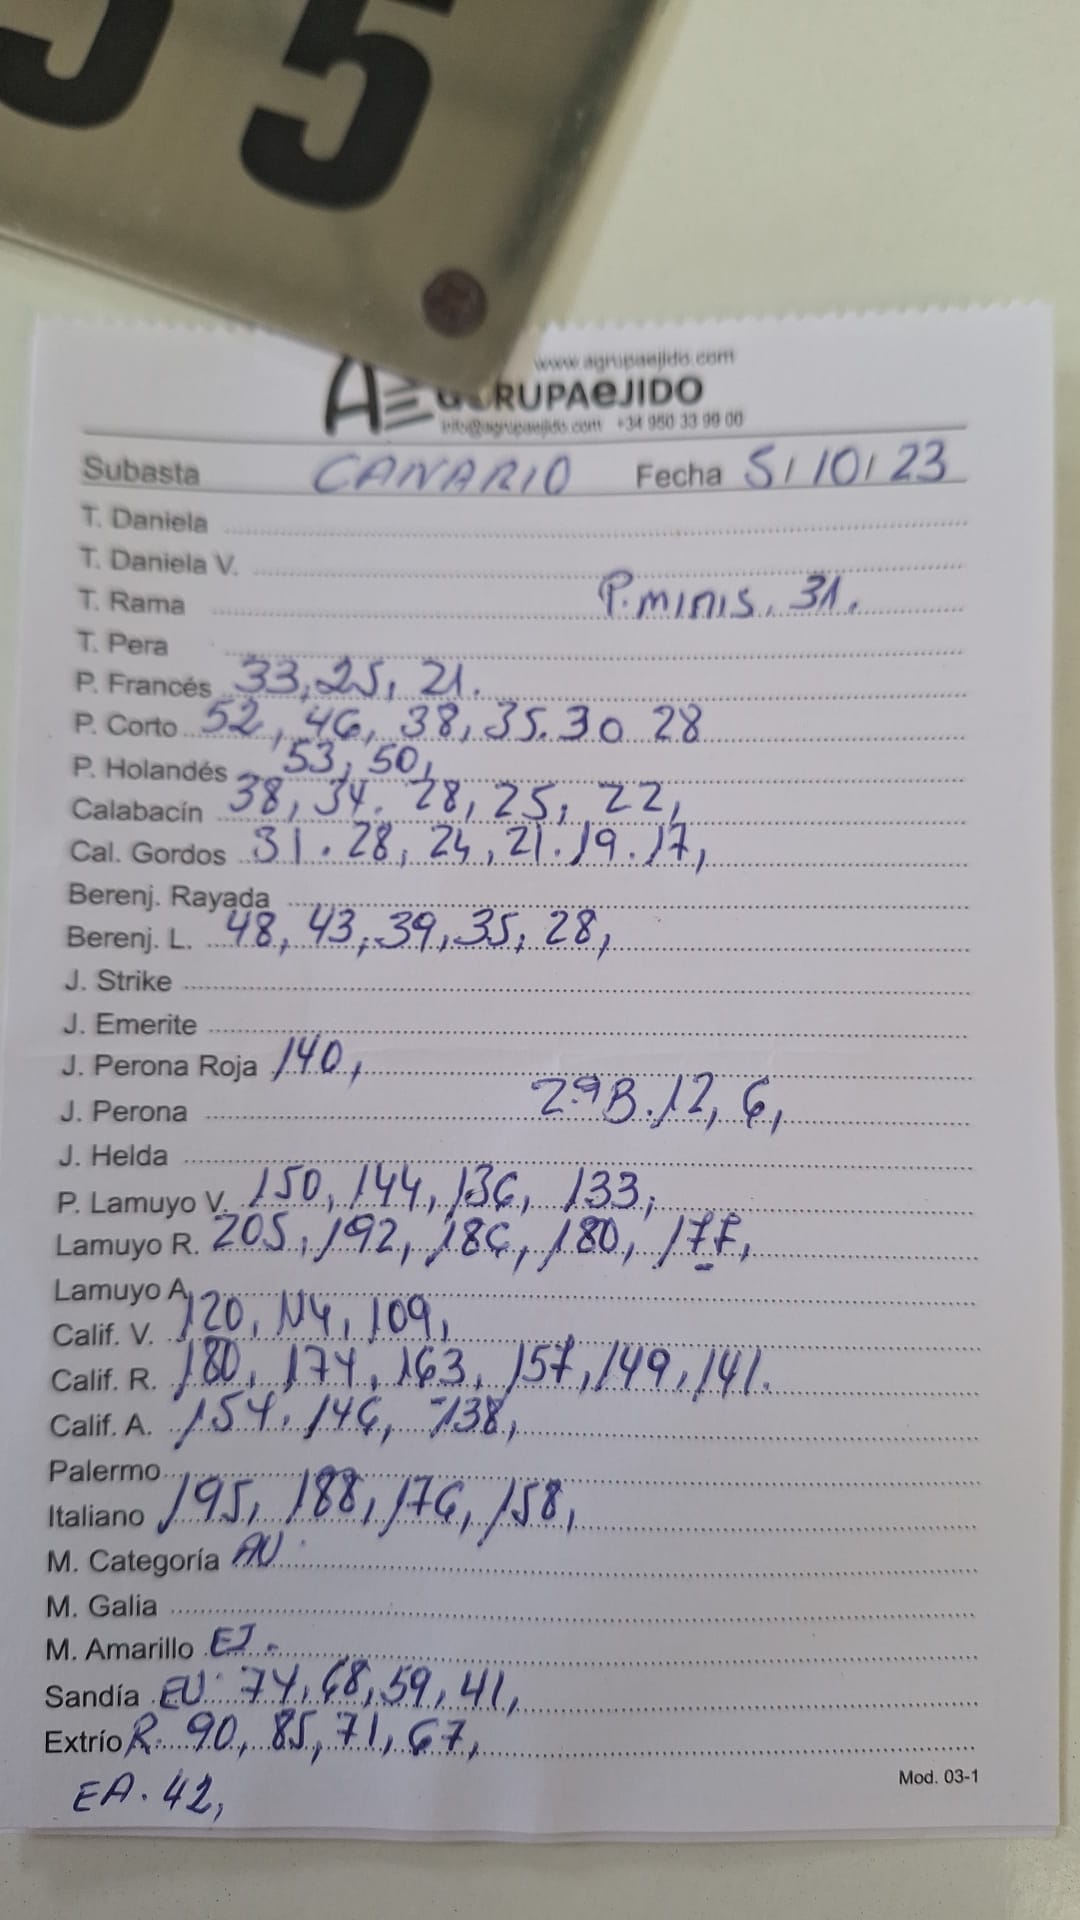 55
www.agrupaejido.com
AGRUPAEJIDO
info@agrupaejido.com +34 950 33 99 00
Subasta CANARIO Fecha 5/10/23
T. Daniela
T. Daniela V.
T. Rama P.minis. 31.
T. Pera
P. Francés 33, 25, 21.
P. Corto 52, 46, 38, 35. 30 28
P. Holandés 53, 50,
Calabacín 38, 34. 28, 25, 22,
Cal. Gordos 31. 28, 24, 21. 19. 17,
Berenj. Rayada
Berenj. L. 48, 43, 39, 35, 28,
J. Strike
J. Emerite
J. Perona Roja 140,
J. Perona 2ªB. 12, 6,
J. Helda
P. Lamuyo V. 150, 144, 136, 133,
Lamuyo R. 205, 192, 186, 180, 177,
Lamuyo A.
Calif. V. 120, 114, 109,
Calif. R. 180, 174, 163, 157, 149, 141.
Calif. A. 154. 146, 138,
Palermo
Italiano 195, 188, 176, 158,
M. Categoría AU.
M. Galia
M. Amarillo EJ.
Sandía EU 74, 68, 59, 41,
Extrío R. 90, 85, 71, 67,
EA. 42,
Mod. 03-1